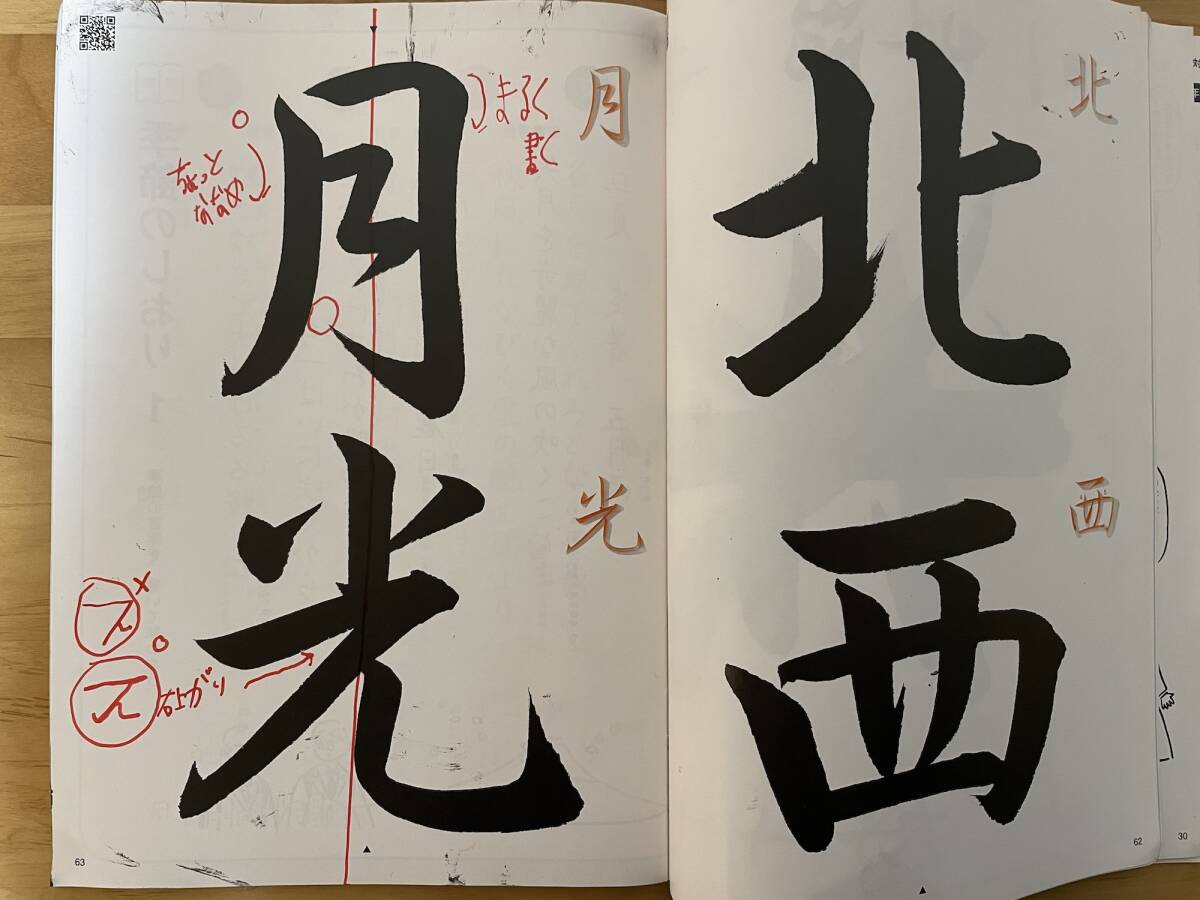 北
西
北
西
62
月
光
月
光
まるく
書く
ちょっと
ななめ
右上がり
63
30
対